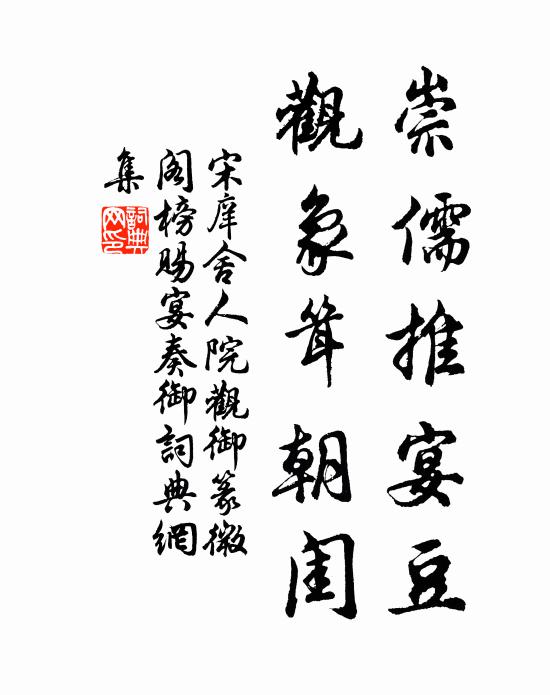 崇儒推宴豆
觀象耸朝闺
宋庠舍人院觀御篆徽
阁榜赐宴奏御詞典網
集
詞典
网印